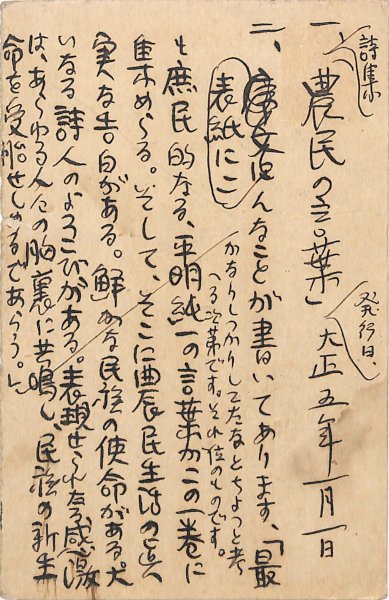 詩集
一、「農民の言葉」大正五年一月一日
発行日、
二、序文はこんなことが書いてあります、「最
表紙に
かなりしつかりしてたなとちょっと考
へる次第です。それ位のものです。
も庶民的なる、平明純一の言葉がこの一巻に
集めらる。そして、そこに農民生活の真
実な告白がある。鮮かな民族の使命がある。大
いなる詩人のよろこびがある。表現せられたる感激
は、あらゆる人の胸裏に共鳴し、民族の新生
命を受胎せしむるであらう。」